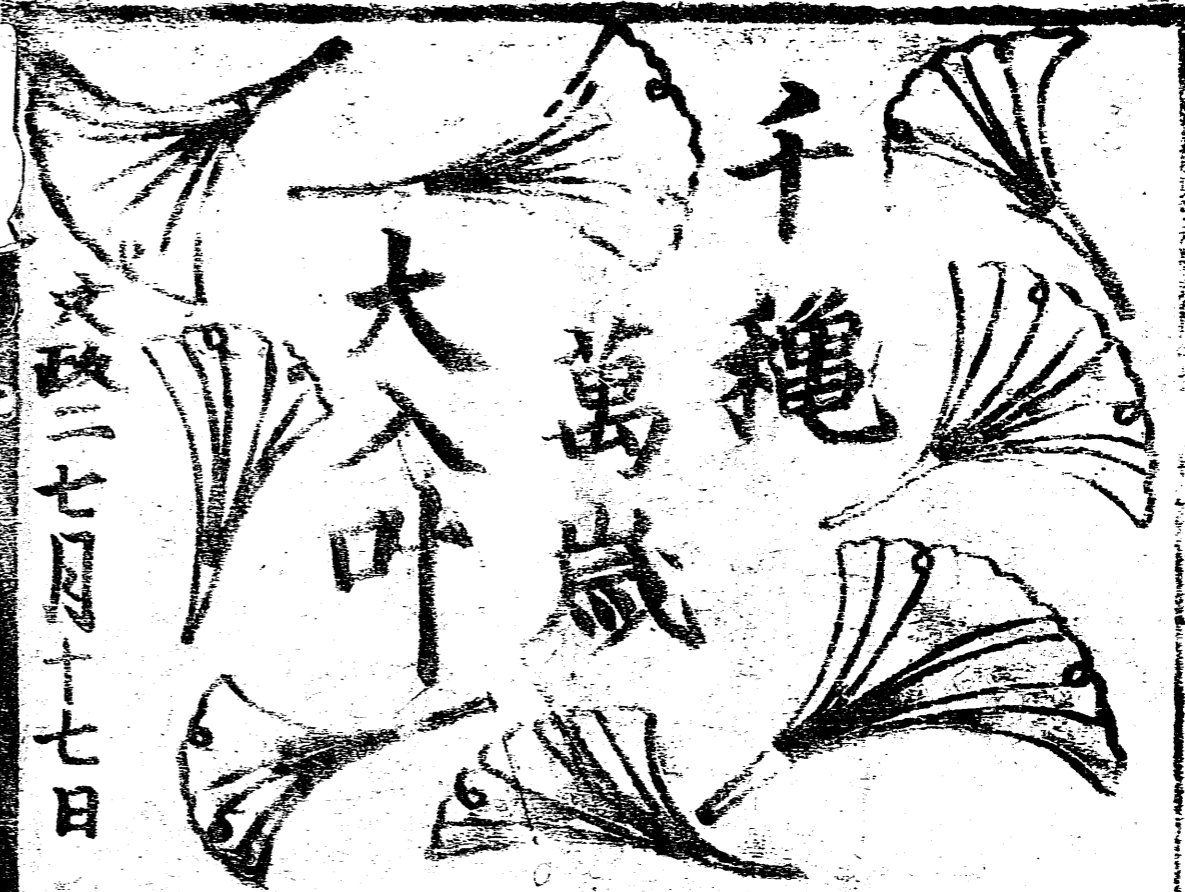 千穐
萬歳
大入叶
文政三七月十七日